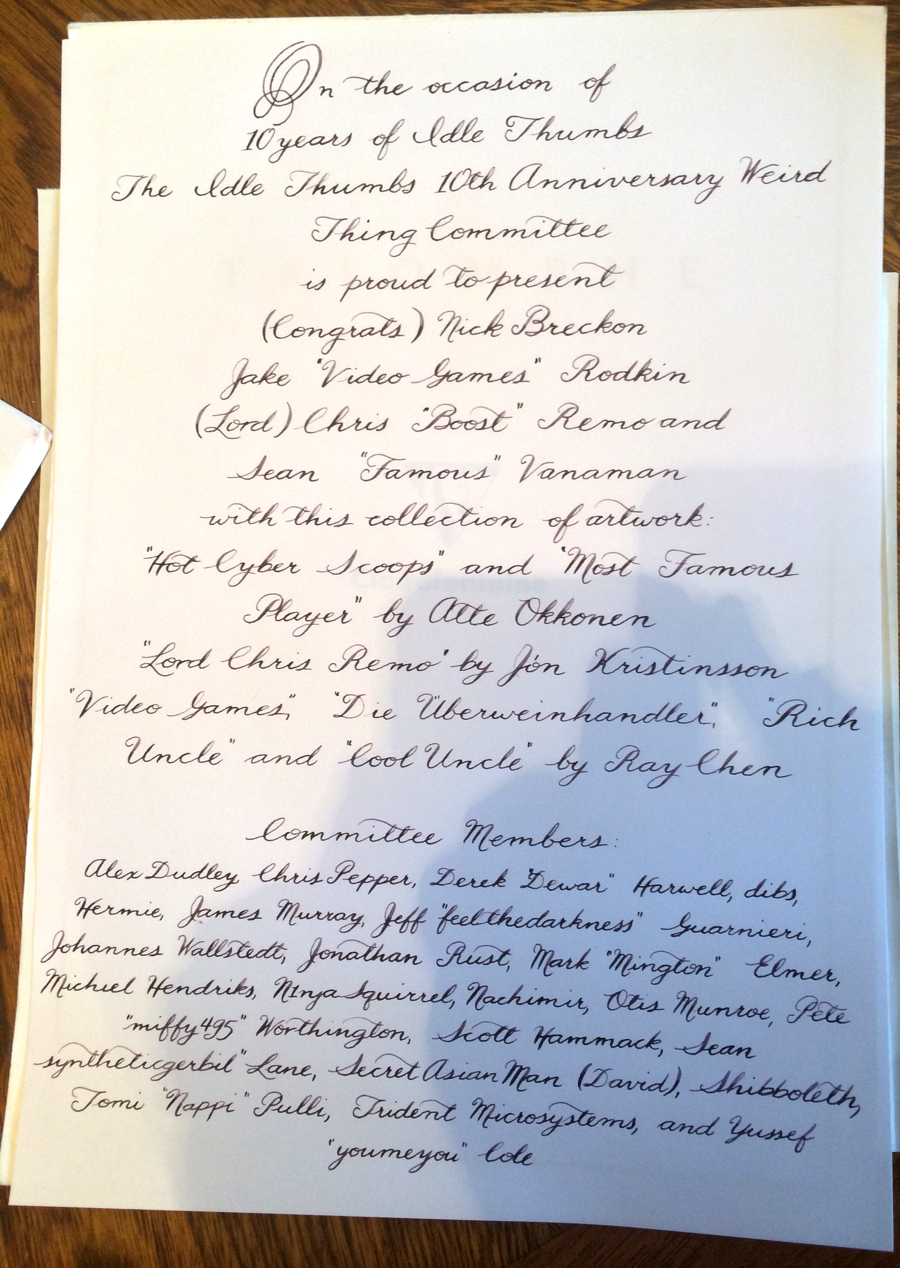 On the occasion of
10 years of Idle Thumbs
The Idle Thumbs 10th Anniversary Weird
Thing Committee
is proud to present
(Congrats) Nick Breckon
Jake "Video Games" Rodkin
(Lord) Chris "Boost" Remo and
Sean "Famous" Vanaman
with this collection of artwork:
"Hot Cyber Scoops" and "Most Famous
Player" by Atte Okkonen
"Lord Chris Remo" by Jón Kristinsson
"Video Games", "Die Überweinhandler", "Rich
Uncle" and "Cool Uncle" by Ray Chen
Committee Members:
Alex Dudley, Chris Pepper, Derek "Dewar" Harwell, dibs,
Hermie, James Murray, Jeff "feelthedarkness" Guarnieri,
Johannes Wallstedt, Jonathan Rust, Mark "Mington" Elmer,
Michiel Hendriks, N1nja Squirrel, Nachimir, Otis Munroe, Pete
"miffy495" Worthington, Scott Hammack, Sean
syntheticgerbil" Lane, Secret Asian Man (David), Shibboleth,
Tomi "Nappi" Pulli, Trident Microsystems, and Yussef
"youmeyou" Cole